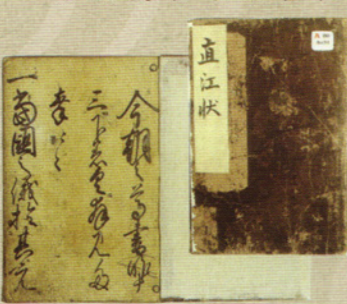 直江状
今朔之尊書昨
三下着具拝見多
幸
一當國之儀於其元